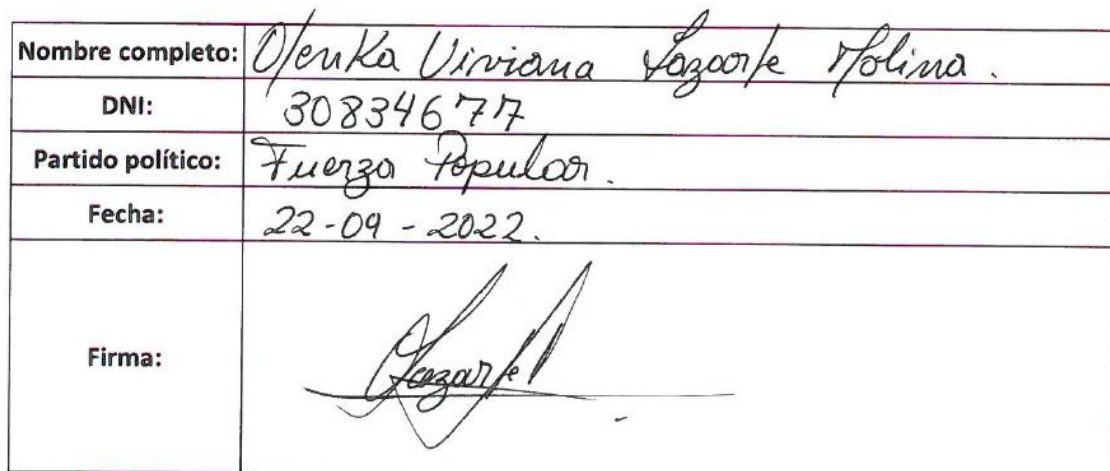 Nombre completo: Olenka Viviana Lazarte Molina.
DNI: 30834677
Partido político: Fuerza Popular.
Fecha: 22-09-2022.
Firma: Lazarte